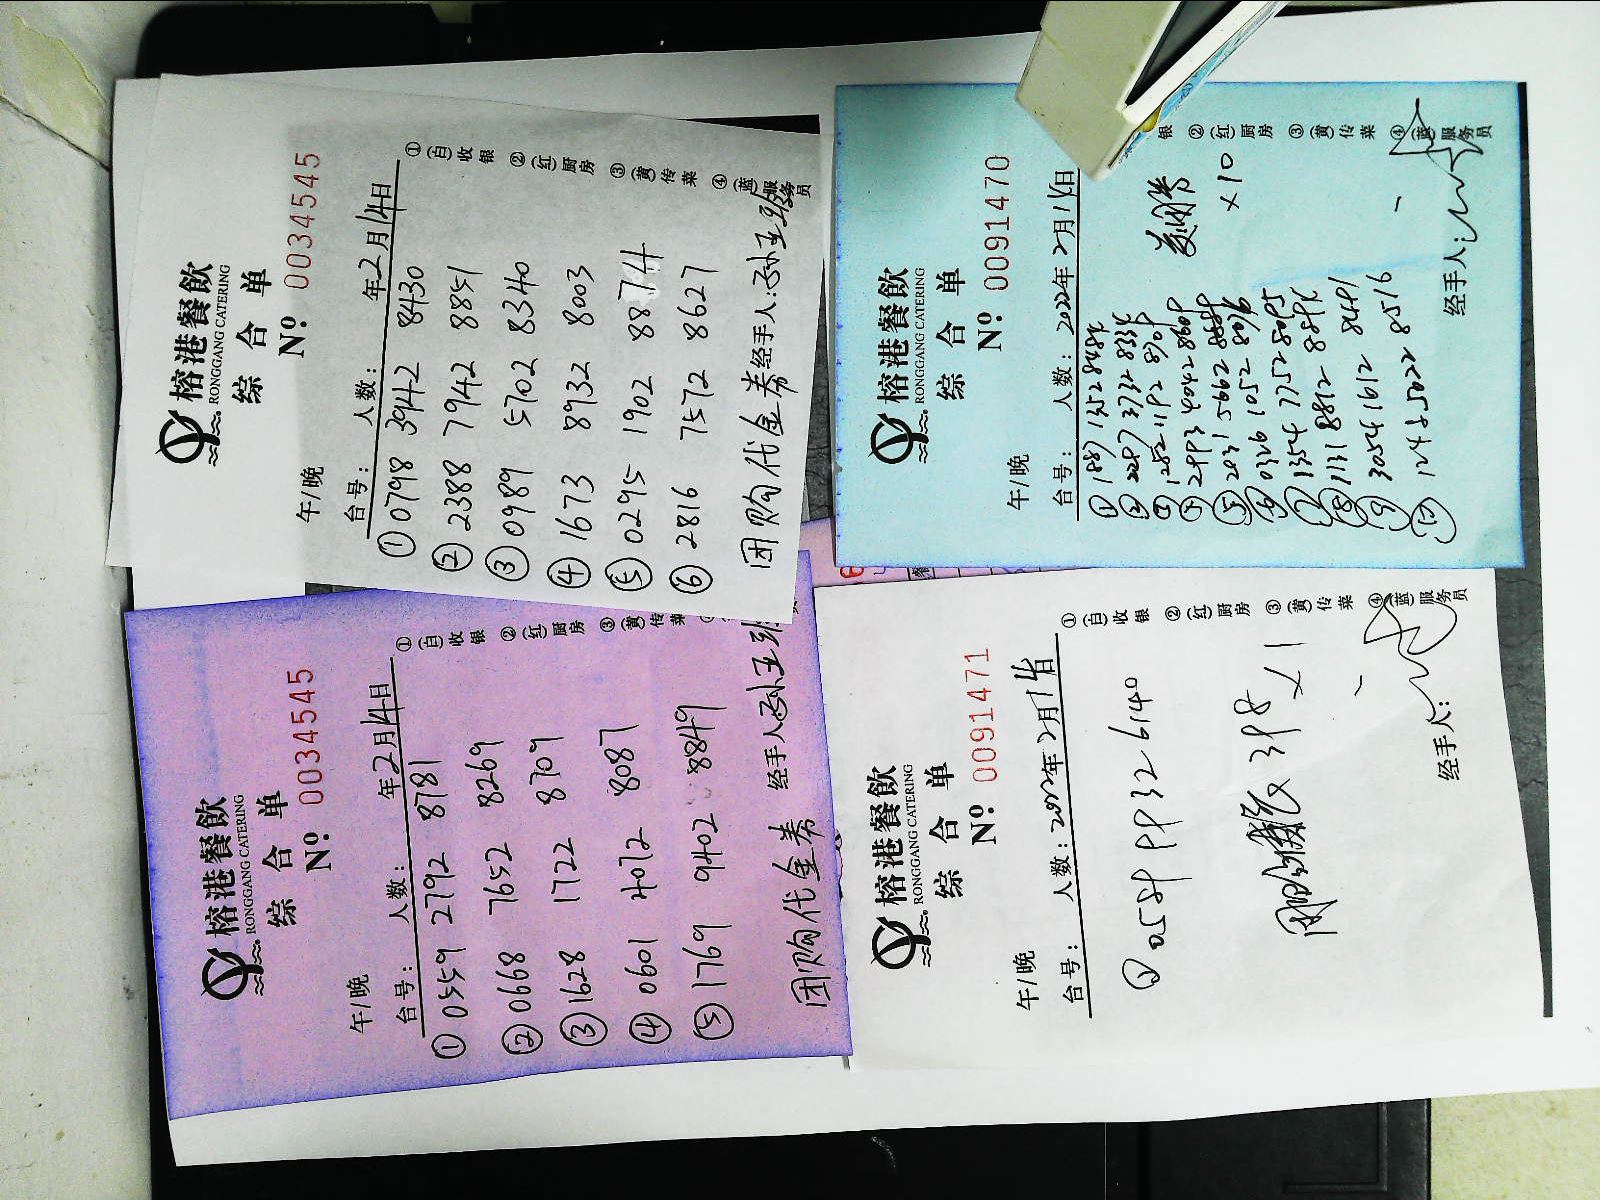 榕港餐飲
RONGGANG CATERING
综合单
Nº: 0034545
午/晚
台号: 人数: 年2月14日
① 0798 3942 8430
② 2388 7942 8851
③ 0989 5702 8340
④ 1673 8932 8003
⑤ 0295 1902 8874
⑥ 2816 7572 8627
团购代金券
经手人:孙玉
①(白)收银
②(红)厨房
③(黄)传菜
④(蓝)服务员
榕港餐飲
RONGGANG CATERING
综合单
Nº: 0091470
午/晚
台号: 人数: 2022年2月14日
⑤ 2031 5662
⑥ 0326 1052
⑧ 1131 8812
⑨ 3054 1612 8491
⑩ 5022 8516
×10
经手人:
银
②(红)厨房
③(黄)传菜
④(蓝)服务员
榕港餐飲
RONGGANG CATERING
综合单
Nº: 0034545
午/晚
台号: 人数: 年2月14日
① 0559 2792 8781
② 0668 7652 8269
③ 1628 1722 8709
④ 0601 4072 8087
⑤ 1769 9402 8849
团购代金券
经手人:孙玉
①(白)收银
②(红)厨房
③(黄)传菜
榕港餐飲
RONGGANG CATERING
综合单
Nº: 0091471
午/晚
台号: 人数: 2022年2月14日
① 0589 9932 6140
398 ×1
经手人:
①(白)收银
②(红)厨房
③(黄)传菜
④(蓝)服务员